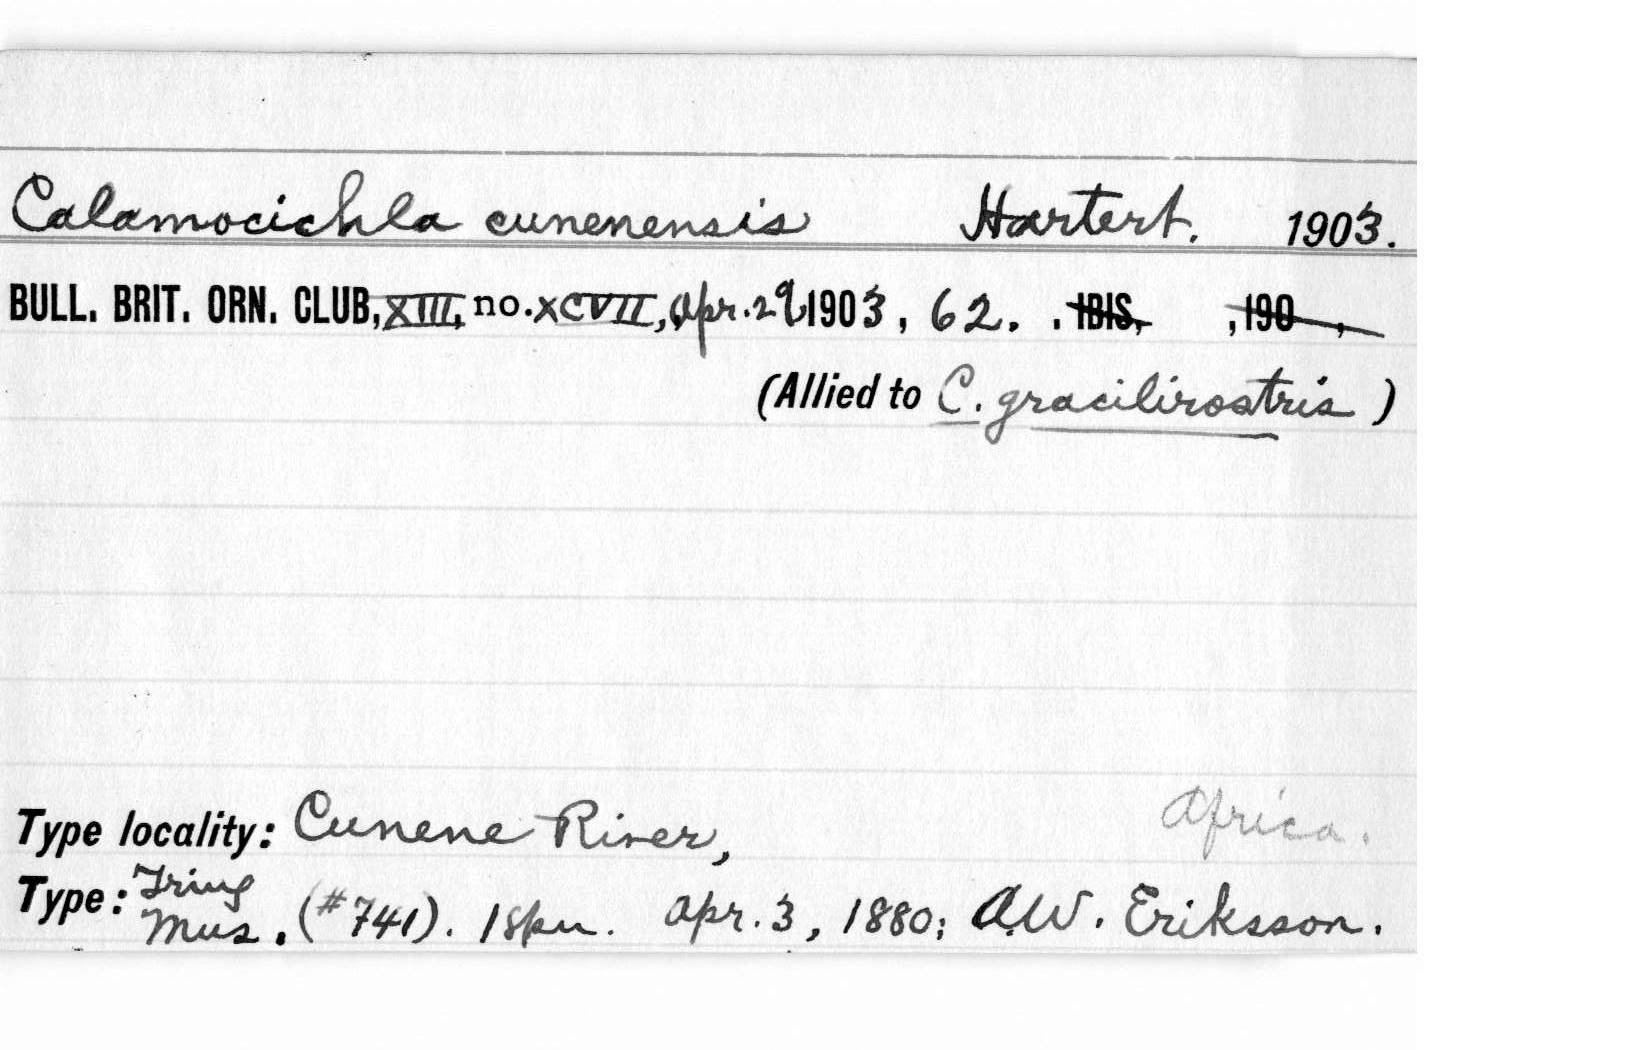 Calamocichla cunenensis Hartert. 1903.
BULL. BRIT. ORN. CLUB, XIII, no. XCVII, Apr. 29, 1903, 62. . IBIS, ,190 ,
(Allied to C. gracilirostris )
Type locality: Cunene River, Africa.
Type: Tring Mus. (#741). 1 spn. Apr. 3, 1880; A.W. Eriksson.